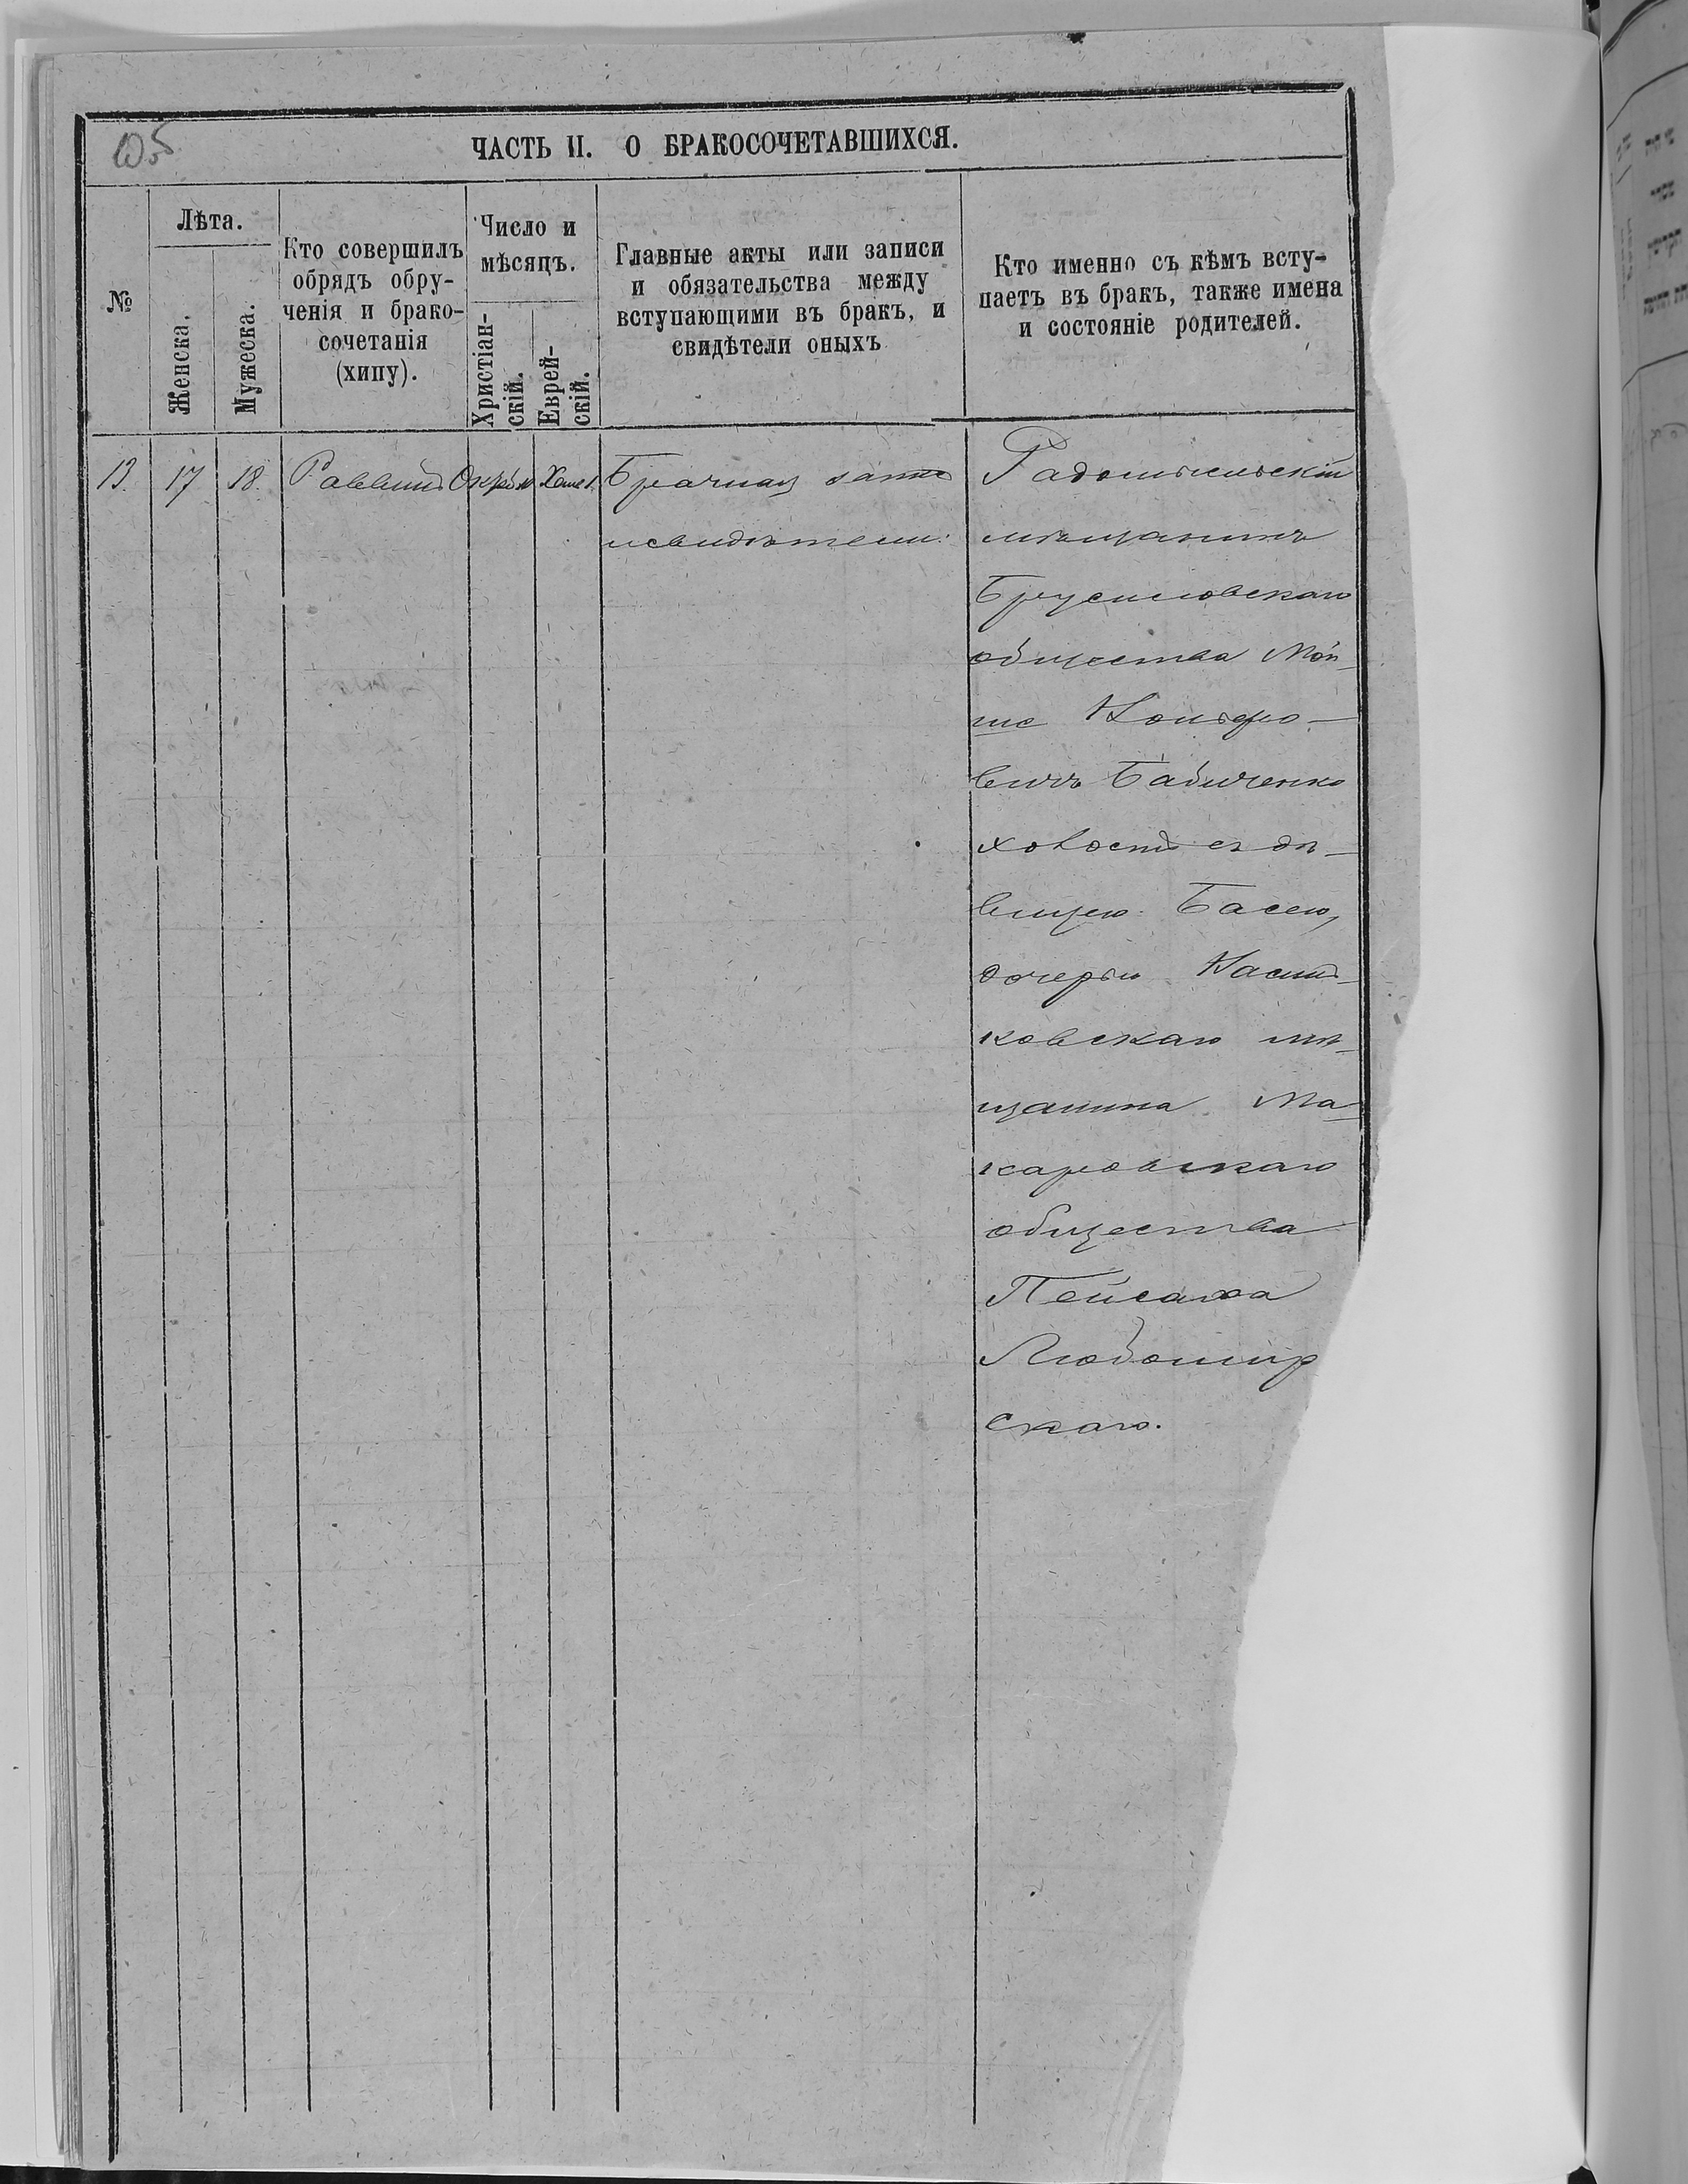 105
ЧАСТЬ II. О БРАКОСОЧЕТАВШИХСЯ.
№
Лѣта.
Женска.
Мужеска.
Кто совершилъ
обрядъ обру-
ченія и брако-
сочетанія
(хипу).
Число и
мѣсяцъ.
Христіан-
скій.
Еврей-
скій.
Главные акты или записи
и обязательства между
вступающими въ бракъ, и
свидѣтели оныхъ
Кто именно съ кѣмъ всту-
паетъ въ бракъ, также имена
и состояніе родителей.
13. 17 18. Раввинъ
Брачная запись
и свидѣтели:
Радомысльскій
мѣщанинъ
Брусиловскаго
общества Мой-
ше
вичъ Бабиченко
холостъ съ дѣ-
вицею Басею,
дочерью Василь-
ковскаго мѣ-
щанина Ма-
каровскаго
общества
Пейсаха
Любомир
скаго.